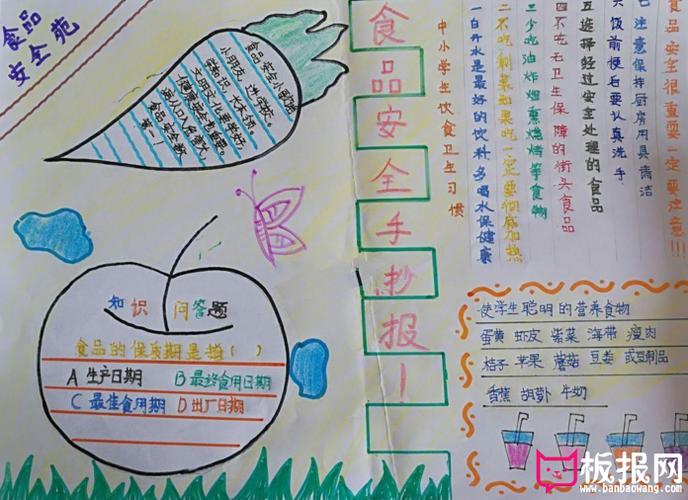 食品
安全苑
食品安全小歌谣
小朋友，进学校。
食品安全手抄报！
中小学生饮食卫生习惯
一白开水是最好的饮料多喝水保健康
二不吃剩菜如果吃一定要彻底加热
三少吃油炸烟熏烧烤等食物
四不吃无卫生保障的街头食品
五选择经过安全处理的食品
六饭前便后要认真洗手
七注意保持厨房用具清洁
食品安全很重要一定要注意!!!
知识 问答题
食品的保质期是指( )
A 生产日期 B 最终食用日期
C 最佳食用期 D 出厂日期
使学生聪明的营养食物
蛋黄 虾皮 紫菜 海带 瘦肉
桔子 苹果 蘑菇 豆类 或豆制品
香蕉 胡萝卜 牛奶
板报网
www.banbaowang.com